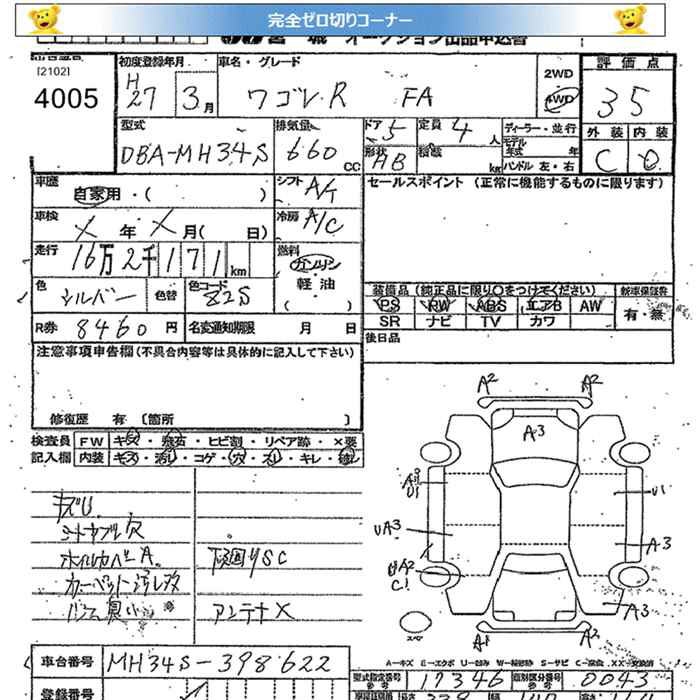 完全ゼロ切りコーナー
宮 城 オークション出品申込書
[2102]
4005
初度登録年月
H 27 3月
車名・グレード
ワゴンR FA
2WD
4WD
評価点
3.5
型式
DBA-MH34S
排気量
660 CC
ドア 5
定員 4 人
形状 AB
積載 kg
ディーラー・並行
モデル年式 年
ハンドル 左・右
外装 内装
C D
車歴
自家用・( )
シフト A/T
セールスポイント (正常に機能するものに限ります)
車検
年 月( 日)
冷房 A/C
走行
16万2千171km
燃料
ガソリン
・
軽油
( )
色
シルバー
色替
色コード
Z2S
装備品 (純正品に限り○をつけてください)
PS PW ABS エアB AW
SR ナビ TV カワ
新車保証書
有・無
R券 8460円
名変通知期限 月 日
後日品
注意事項申告欄 (不具合内容等は具体的に記入して下さい)
修復歴 有 〔箇所 〕
検査員 FW キズ・飛石・ヒビ割・リペア跡・×要
記入欄 内装 キズ・汚レ・コゲ・穴・スレ・キレ・破レ
シートカブレ穴
ホイルカバーA
カーペット汚レ
下廻りSC
アンテナX
A2 A2
A3
U1
U1
UA3
A3
UA2
C1
A3
A1 A2
スペア
A-キズ E-エクボ U-凹み W-補修跡 S-サビ C-腐食 XX-交換済
車台番号
MH34S-398622
型式指定番号
17346
類別区分番号
0043
登録番号